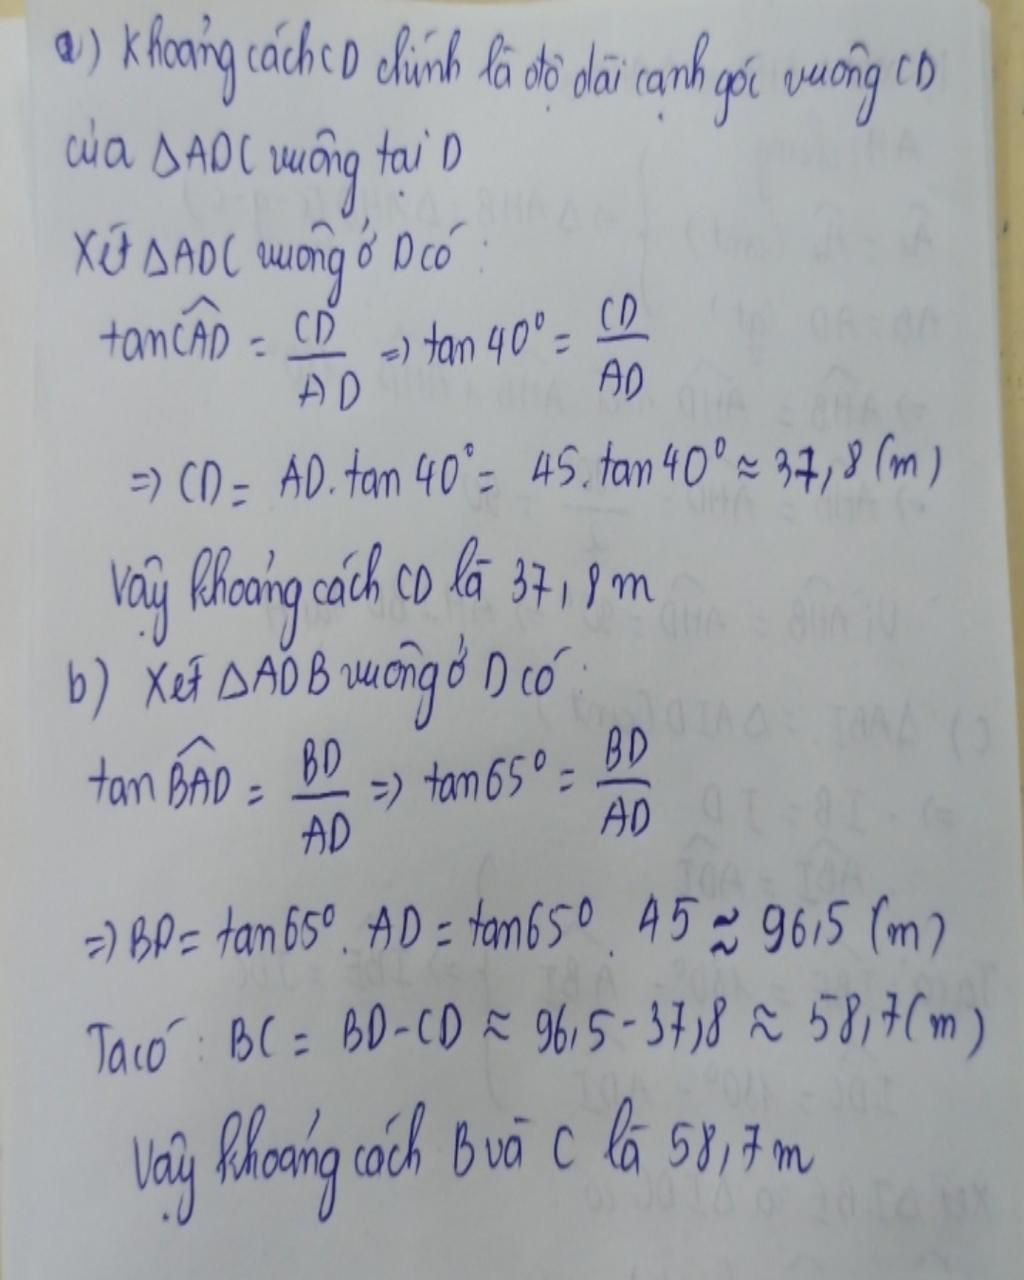 a) Khoảng cách CD chính là độ dài cạnh góc vuông CD
của ΔADC vuông tại D
Xét ΔADC vuông ở D có :
tan CAD = CD/AD => tan 40° = CD/AD
=> CD = AD . tan 40° = 45 . tan 40° ≈ 37,8 (m)
Vậy khoảng cách CD là 37,8 m
b) Xét ΔADB vuông ở D có :
tan BAD = BD/AD => tan 65° = BD/AD
=> BD = tan 65° . AD = tan 65° . 45 ≈ 96,5 (m)
Ta có : BC = BD - CD ≈ 96,5 - 37,8 ≈ 58,7 (m)
Vậy khoảng cách B và C là 58,7 m